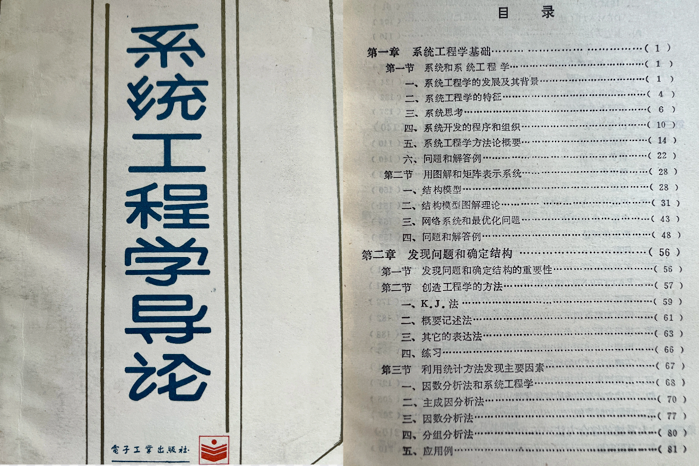 系统工程学导论
电子工业出版社
目 录
第一章 系统工程学基础…………………………( 1 )
第一节 系统和系统工程学…………………………( 1 )
一、系统工程学的发展及其背景…………………………( 1 )
二、系统工程学的特征…………………………( 4 )
三、系统思考…………………………( 6 )
四、系统开发的程序和组织…………………………( 10 )
五、系统工程学方法论概要…………………………( 14 )
六、问题和解答例…………………………( 22 )
第二节 用图解和矩阵表示系统…………………………( 28 )
一、结构模型…………………………( 28 )
二、结构模型图解理论…………………………( 31 )
三、网络系统和最优化问题…………………………( 43 )
四、问题和解答例…………………………( 48 )
第二章 发现问题和确定结构…………………………( 56 )
第一节 发现问题和确定结构的重要性…………………………( 56 )
第二节 创造工程学的方法…………………………( 57 )
一、K.J.法…………………………( 59 )
二、概要记述法…………………………( 61 )
三、其它的表达法…………………………( 63 )
四、练习…………………………( 66 )
第三节 利用统计方法发现主要因素…………………………( 67 )
一、因数分析法和系统工程学…………………………( 68 )
二、主成因分析法…………………………( 70 )
三、因数分析法…………………………( 77 )
四、分组分析法…………………………( 80 )
五、应用例…………………………( 81 )